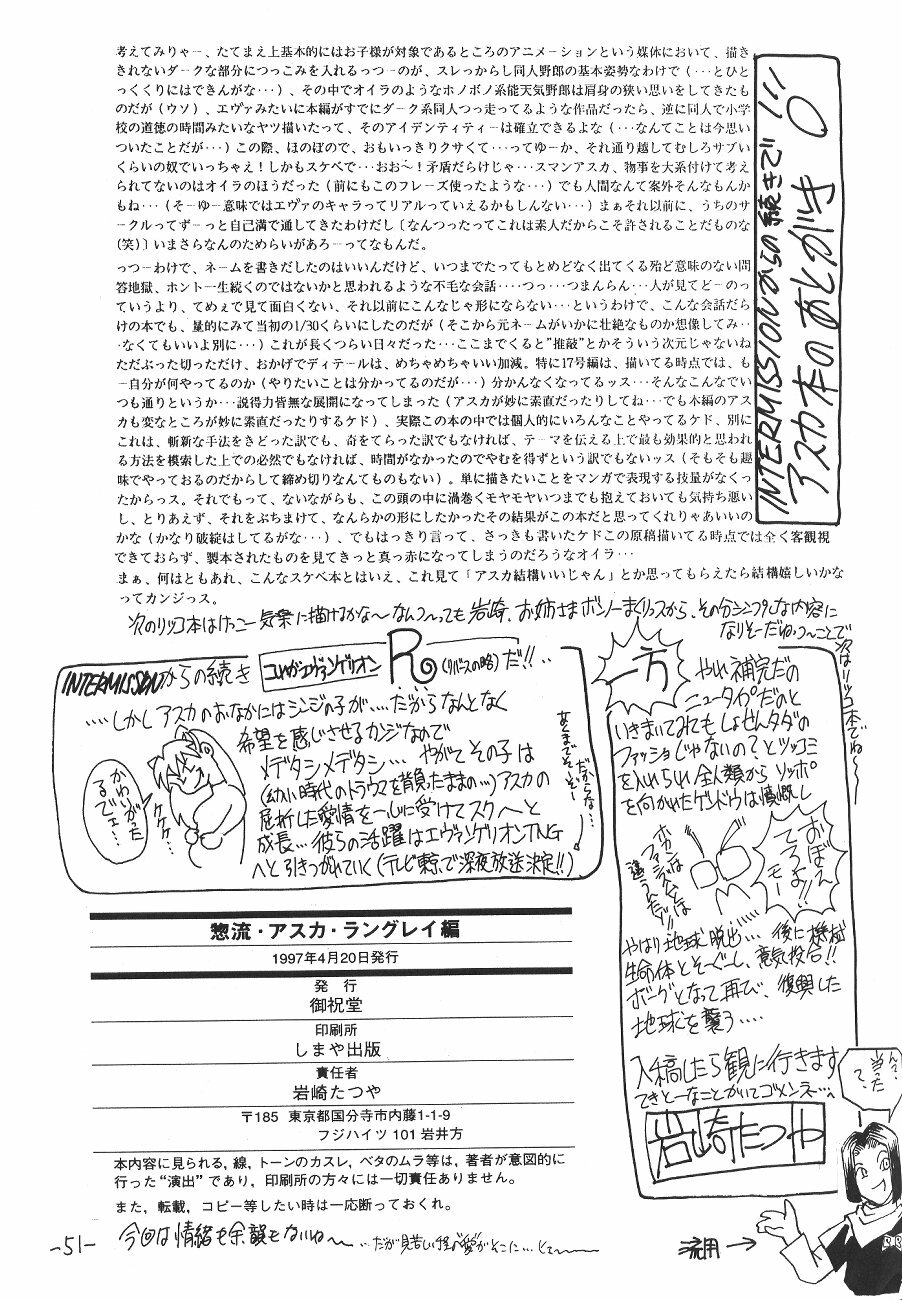 INTERMISSIONからの続きで!!
アスカ本のあとがき
考えてみりゃー、たてまえ上基本的にはお子様が対象であるところのアニメーションという媒体において、描き
きれないダークな部分につっこみを入れるっつーのが、スレっからし同人野郎の基本姿勢なわけで(…とひと
っくくりにはできんがな…)、その中でオイラのようなホノボノ系能天気野郎は肩身の狭い思いをしてきたも
のだが(ウソ)、エヴァみたいに本編がすでにダーク系同人つっ走ってるような作品だったら、逆に同人で小学
校の道徳の時間みたいなヤツ描いたって、そのアイデンティティーは確立できるよな(…なんてことは今思い
ついたことだが…)この際、ほのぼので、おもいっきりクサくて…ってゆーか、それ通り越してむしろサブい
くらいの奴でいっちゃえ!しかもスケベで…おお〜!矛盾だらけじゃ…スマンアスカ、物事を大系付けて考え
られてないのはオイラのほうだった(前にもこのフレーズ使ったような…)でも人間なんて案外そんなもんか
もね…(そーゆー意味ではエヴァのキャラってリアルっていえるかもしんない…)まぁそれ以前に、うちのサ
ークルってずーっと自己満で通してきたわけだし〔なんつったってこれは素人だからこそ許されることだものな
(笑)〕いまさらなんのためらいがあろーってなもんだ。
っつーわけで、ネームを書きだしたのはいいんだけど、いつまでたってもとめどなく出てくる殆ど意味のない問
答地獄、ホント一生続くのではないかと思われるような不毛な会話‥‥つっ…つまんらん…人が見てどーのっ
ていうより、てめぇで見て面白くない、それ以前にこんなじゃ形にならない…というわけで、こんな会話だら
けの本でも、量的にみて当初の1/30くらいにしたのだが(そこから元ネームがいかに壮絶なものか想像してみ‥
・なくてもいいよ別に…)これが長くつらい日々だった…ここまでくると"推敲"とかそういう次元じゃないね
ただぶった切っただけ、おかげでディテールは、めちゃめちゃいい加減。特に17号編は、描いてる時点では、も
ー自分が何やってるのか(やりたいことは分かってるのだが…)分かんなくなってるッス…そんなこんなでい
つも通りというか…説得力皆無な展開になってしまった(アスカが妙に素直だったりしてね…でも本編のアス
カも変なところが妙に素直だったりするケド)、実際この本の中では個人的にいろんなことやってるケド、別に
これは、斬新な手法をきどった訳でも、奇をてらった訳でもなければ、テーマを伝える上で最も効果的と思われ
る方法を模索した上での必然でもなければ、時間がなかったのでやむを得ずという訳でもないッス(そもそも趣
味でやっておるのだからして締め切りなんてものもない)。単に描きたいことをマンガで表現する技量がなくっ
たからっス。それでもって、ないながらも、この頭の中に渦巻くモヤモヤいつまでも抱えておいても気持ち悪い
し、とりあえず、それをぶちまけて、なんらかの形にしたかったその結果がこの本だと思ってくれりゃあいいの
かな(かなり破綻はしてるがな…)、でもはっきり言って、さっきも書いたケドこの原稿描いてる時点では全く客観視
できておらず、製本されたものを見てきっと真っ赤になってしまうのだろうなオイラ…
まぁ、何はともあれ、こんなスケベ本とはいえ、これ見て「アスカ結構いいじゃん」とか思ってもらえたら結構嬉しいかな
ってカンジっス。
次のリツコ本はけっこー気楽に描けるかな〜なんつっても岩崎、お姉さまボンノーまくりっスから、その分シンプルな内容に
なりそーだね、つーことで
次はリツコ本でね〜
INTERMISSIONからの続き
R(リバースの略)だ!!‥
‥‥しかしアスカのおなかにはシンジの子が‥‥だからなんとなく
希望を感じさせるカンジなので
メデタシメデタシ… やがてその子は
(幼い時代のトラウマを背負ったままの…)アスカの
屈折した愛情を一心に受けてスクへと
成長…彼らの活躍はエヴァンゲリオンTNG
へと引きつがれていく(テレビ東京で深夜放送決定!!)
かわいがったるでェ…
ケケケ
一方
やれ補完だの
ニュータイプだのと
いきまいてみてもしょせんタダの
ファッショじゃないの?とツッコミ
を入れられ全人類からソッポ
を向かれたゲンドウは憤慨し
おぼえてろよ!!モー
ホカンとファッショは違うんだ!!
やはり地球脱出‥‥後に機械
生命体とそーぐーし、意気投合!!
ボーグとなって再び、復興した
地球を襲う‥‥
入稿したら観に行きます
てきとーなことかいてゴメンネ…
岩崎たつや
惣流・アスカ・ラングレイ編
1997年4月20日発行
発　行
御祝堂
印刷所
しまや出版
責任者
岩崎たつや
〒185　東京都国分寺市内藤1-1-9
フジハイツ 101 岩井方
本内容に見られる, 線, トーンのカスレ, ベタのムラ等は, 著者が意図的に
行った"演出"であり, 印刷所の方々には一切責任ありません。
また, 転載, コピー等したい時は一応断っておくれ。
今回は情緒も余韻もないね〜
流用→
-51-